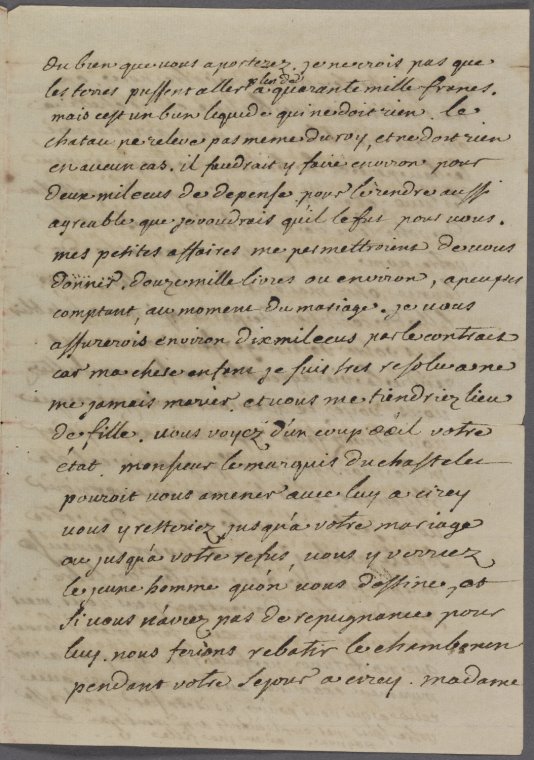 du bien que vous aportezez. je ne crois pas que
les terres pussent aller a plus de quarante mille francs.
mais cest un bien liquide qui ne doit rien. le
chatau ne releve pas meme du roy, et ne doit rien
en aucun cas. il faudrait y faire environ pour
deux mil ecus de depense pour le rendre aussi
agreable que je voudrais qu'il le fut pour vous.
mes petites affaires me permettroient de vous
donner douze mille livres ou environ, a peu pres
comptant, au moment du mariage. je vous
assurerois environ dix mil ecus par le contract
car ma chere enfant je suis tres resolu a ne
me jamais marier. et vous me tiendriez lieu
de fille. vous voyez d'un coup d'œil votre
état. monsieur le marquis du chastelet
pouroit vous amener avec luy a cirey
vous y resteriez jusqu'a votre mariage
ou jusqu'a votre refus, vous y verriez
le jeune homme qu'on vous destine, et
si vous n'aviez pas de repugnance pour
luy. nous ferions rebatir le chambonin
pendant votre sejour a cirey. madame